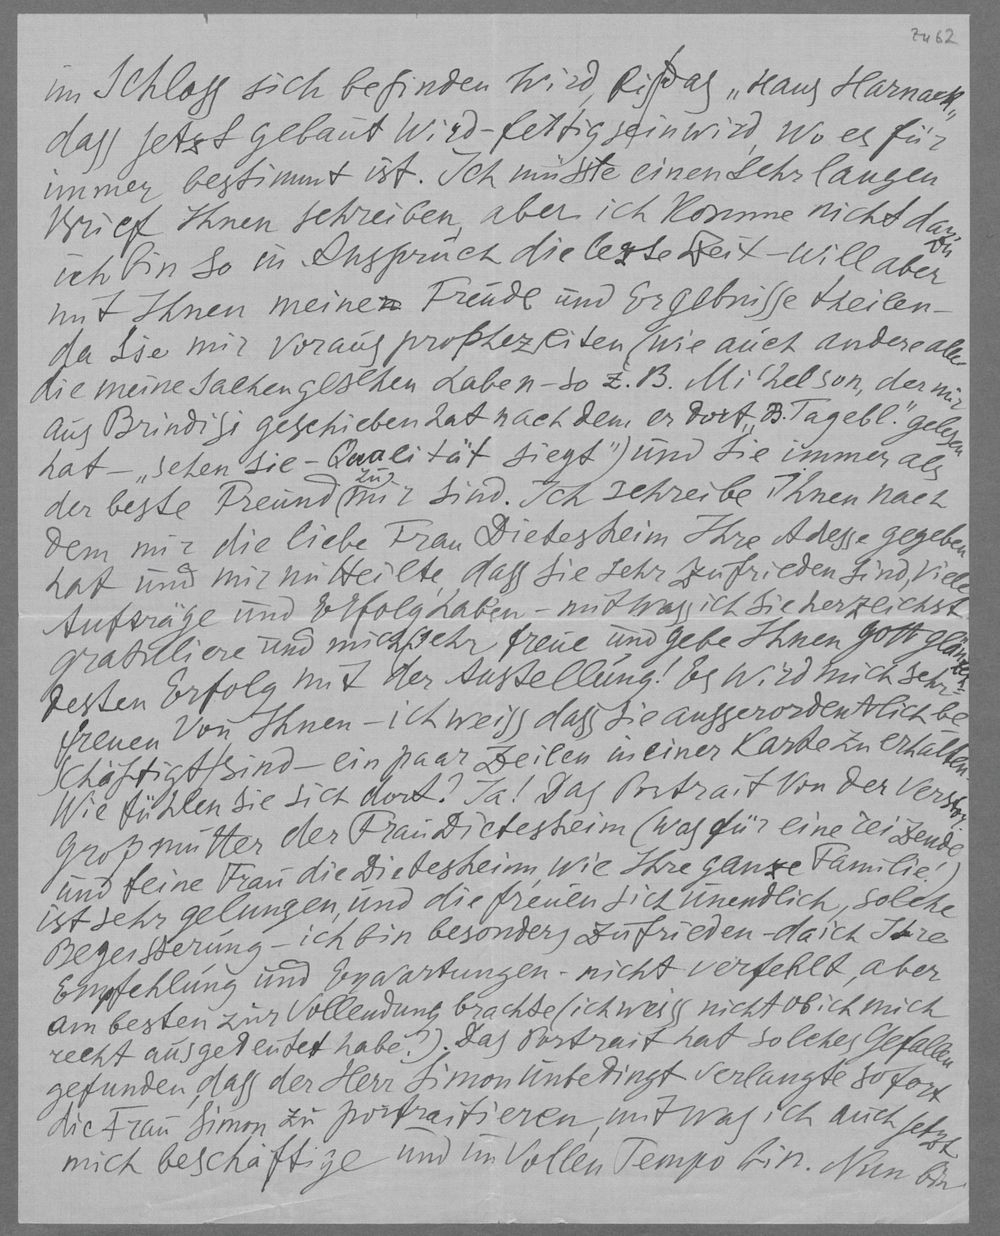 zu 62
im Schloss sich befinden wird, bis das „Haus Harnack„
dass jetzt gebaut wird – fertig sein wird, wo es für
immer bestimmt ist. Ich müsste einen sehr langen
Brief Ihnen schreiben, aber ich komme nicht dazu
ich bin so in Anspruch die letzte Zeit – will aber
mit Ihnen meinen Freude und Ergebnisse theilen –
da Sie mir voraus prophezeiten (wie auch andere alle
die meine Sachen gesehen haben – so z. B. Michelson, der mir
aus Brindisi geschieben hat nach dem er dort „B. Tagebl.“ gelesen
hat – „sehen Sie – Qualität siegt“) und Sie immer als
der beste Freund zu mir sind. Ich schreibe Ihnen nach
dem mir die liebe Frau Dietesheim Ihre Adesse gegeben
hat und mir mitteilte, dass Sie sehr zufrieden sind, viele
Aufträge und Erfolg haben – mit was ich Sie herzlichst
gratuliere und mich sehr freue und gebe Ihnen Gott glänzen
desten Erfolg mit der Austellung! Es wird mich sehr
freuen von Ihnen – ich weiss dass Sie ausserordentlich be
schäftigt sind – ein paar Zeilen in einer Karte zu erhalten.
Wie fühlen Sie sich dort? Ja! Das Portrait von der verstor.
Grossmutter der Frau Dietesheim (was für eine reizende
und feine Frau die Dietesheim, wie Ihre ganze Familie!)
ist sehr gelungen, und die freuen sich unendlich, solche
Begeisterung – ich bin besonders zufrieden – da ich Ihre
Empfehlung und Erwartungen – nicht verfehlt, aber
am besten zur Vollendung brachte (ich weiss nicht ob ich mich
recht ausgedeutet habe?). Das Portrait hat solches Gefallen
gefunden, dass der Herr Simon unbedingt verlangte sofort
die Frau Simon zu portraitieren, mit was ich auch jetzt
mich beschäftige und im vollen Tempo bin. Nun bin